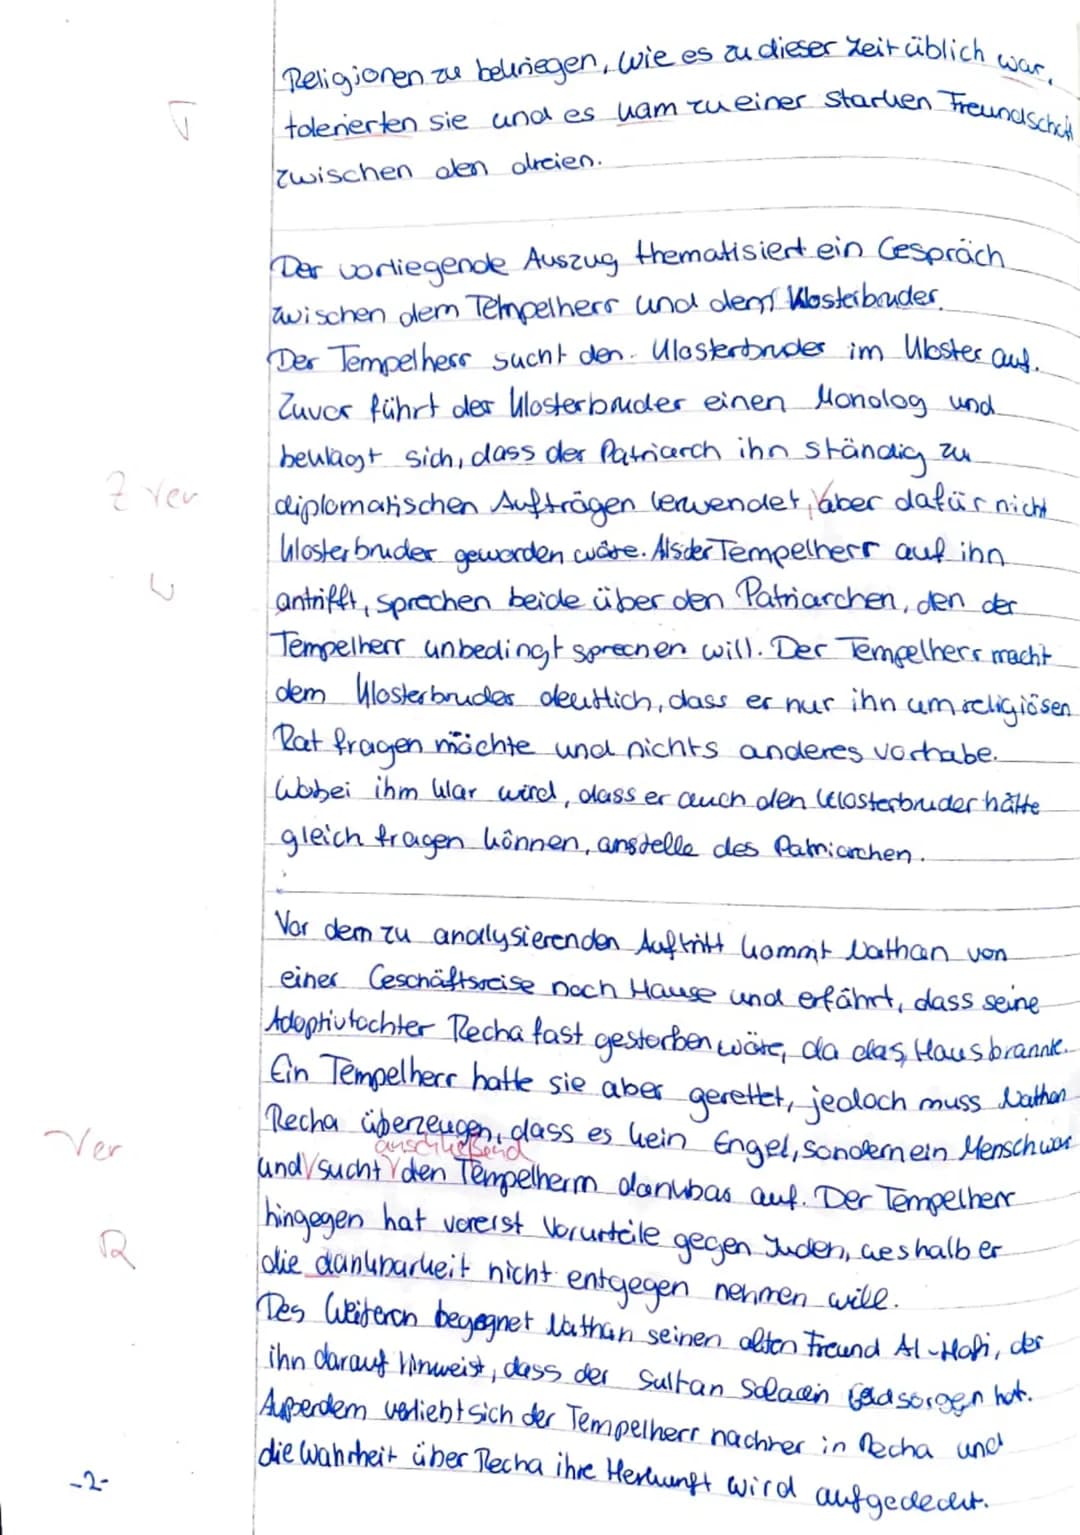 Religionen zu bekriegen, wie es zu dieser Zeit üblich war,
T
tolerierten sie und es kam zu einer starken Freundschaft
zwischen den dreien.
Der vorliegende Auszug thematisiert ein Gespräch
zwischen dem Tempelherr und dem Klosterbruder.
Der Tempelherr sucht den Klosterbruder im Kloster auf.
Zuvor führt der Klosterbruder einen Monolog und
beklagt sich, dass der Patriarch ihn ständig zu
Z Ver
diplomatischen Aufträgen verwendet, aber dafür nicht
Klosterbruder geworden wäre. Als der Tempelherr auf ihn
antrifft, sprechen beide über den Patriarchen, den der
Tempelherr unbedingt sprechen will. Der Tempelherr macht
dem Klosterbruder deutlich, dass er nur ihn um religiösen
Rat fragen möchte und nichts anderes vorhabe.
Wobei ihm klar wird, dass er auch den Klosterbruder hätte
gleich fragen können, anstelle des Patriarchen.
Vor dem zu analysierenden Auftritt kommt Nathan von
einer Geschäftsreise nach Hause und erfährt, dass seine
Adoptivtochter Recha fast gestorben wäre, da das Haus brannte.
Ein Tempelherr hatte sie aber gerettet, jedoch muss Nathan
Recha überzeugen, dass es kein Engel, sondern ein Mensch war
Ver
anschließend
und sucht den Tempelherrn dankbar auf. Der Tempelherr
hingegen hat vorerst Vorurteile gegen Juden, weshalb er
R
die dankbarkeit nicht entgegen nehmen will.
Des Weiteren begegnet Nathan seinen alten Freund Al-Hafi, der
ihn darauf hinweist, dass der Sultan Saladin Geldsorgen hat.
Außerdem verliebt sich der Tempelherr nachher in Recha und
die Wahrheit über Recha ihre Herkunft wird aufgedeckt.
-2-